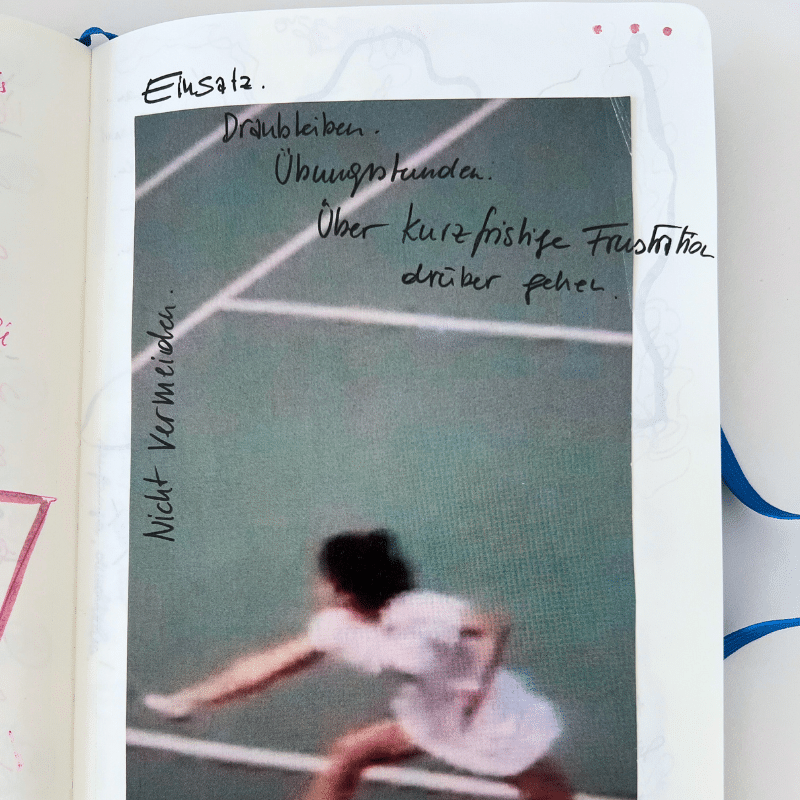 Einsatz.
Dranbleiben.
Übungsstunden.
Über kurzfristige Frustration
drüber gehen.
Nicht vermeiden.